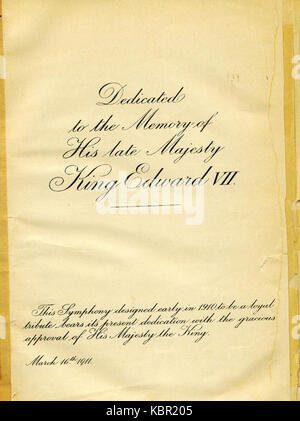 Dedicated
to the Memory of
His late Majesty
King Edward VII.
This Symphony designed early in 1910 to be a loyal
tribute, bears its present dedication with the gracious
approval of His Majesty the King.
March 16th 1911.
alamy stock photo
KBR205